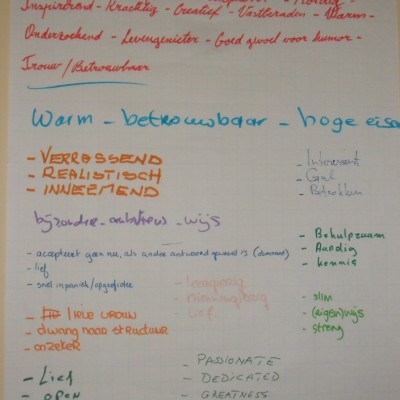 Inspirerend - Krachtig - Creatief - Vastberaden - Warm -
Onderzoekend - Levensgenieter - Goed gevoel voor humor -
Trouw / Betrouwbaar
Warm - betrouwbaar - hoge eise
- VERRASSEND
- REALISTISCH
- INNEMEND
- Interessant
- Gul
- Betrokken
bijzonder - ambitieus - wijs
- Behulpzaam
- Aardig
- kennis
- accepteert geen nu, als ander antwoord gewenst is (dominant)
- lief
- snel in paniek/opgefokter
- leergierig
- nieuwsgierig
- lief
- slim
- (eigen)wijs
- streng
- lieve vrouw
- dwang naar structuur
- onzeker
- Lief
- open
- PASIONATE
- DEDICATED
- GREATNESS